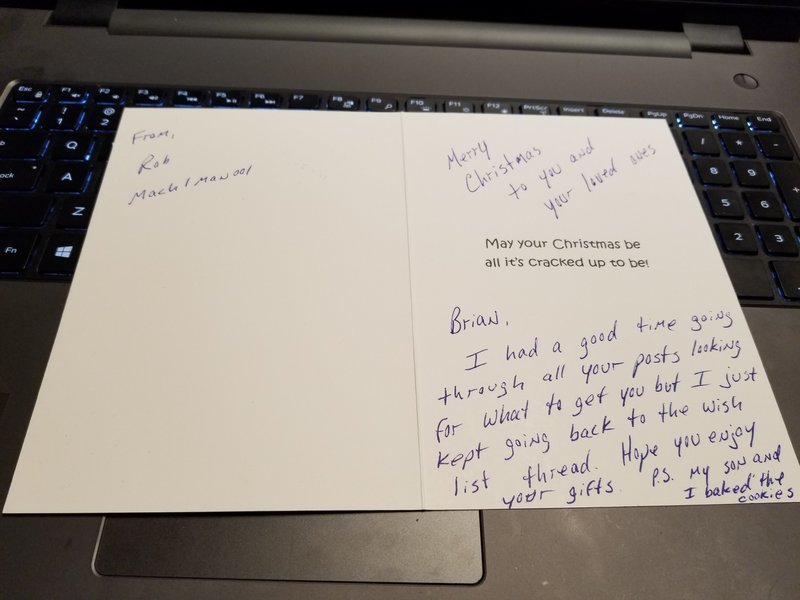 Esc F1 F2 F3 F4 F5 F6 F7 F8 F9 F10 F11 F12 PrtScr Insert Delete PgUp PgDn Home End
~ ! @
1 2
Q
A
Z
Fn
/ * -
8 9
5 6 +
2 3
From,
Rob
Mach1Man001
Merry
Christmas
to you and
your loved ones
May your Christmas be
all it's cracked up to be!
Brian,
I had a good time going
through all your posts looking
for what to get you but I just
kept going back to the wish
list thread. Hope you enjoy
your gifts. P.S. My son and
I baked the
cookies